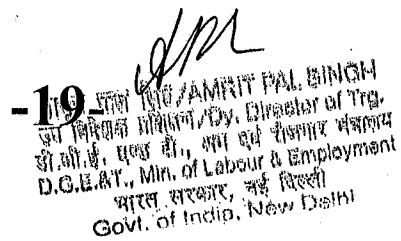 -19-
/AMRIT PAL SINGH
उप निदेशक प्रशिक्षण/Dy. Director of Trg.
डी.जी.ई. एण्ड टी., श्रम एवं रोजगार मंत्रालय
D.G.E.&T., Min. of Labour & Employment
भारत सरकार, नई दिल्ली
Govt. of India, New Delhi